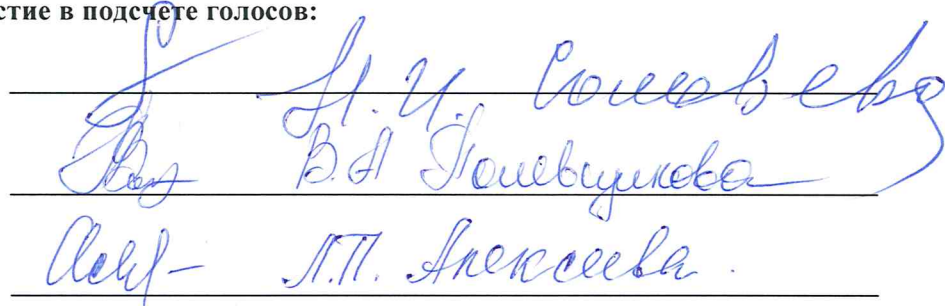 стие в подсчете голосов:
Н.И. Соловьева
В.А Полевщикова
Л.П. Алексеева.